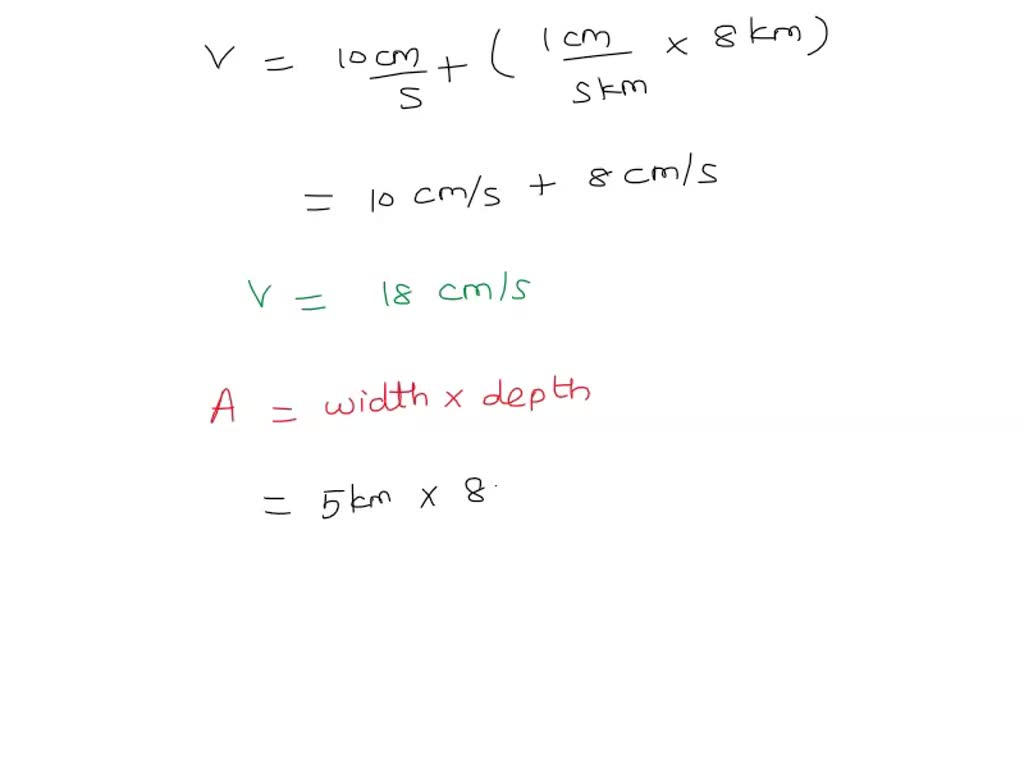 V = 10 cm/s + ( 1 cm / s km × 8 km )
= 10 cm/s + 8 cm/s
V = 18 cm/s
A = width × depth
= 5 km × 8